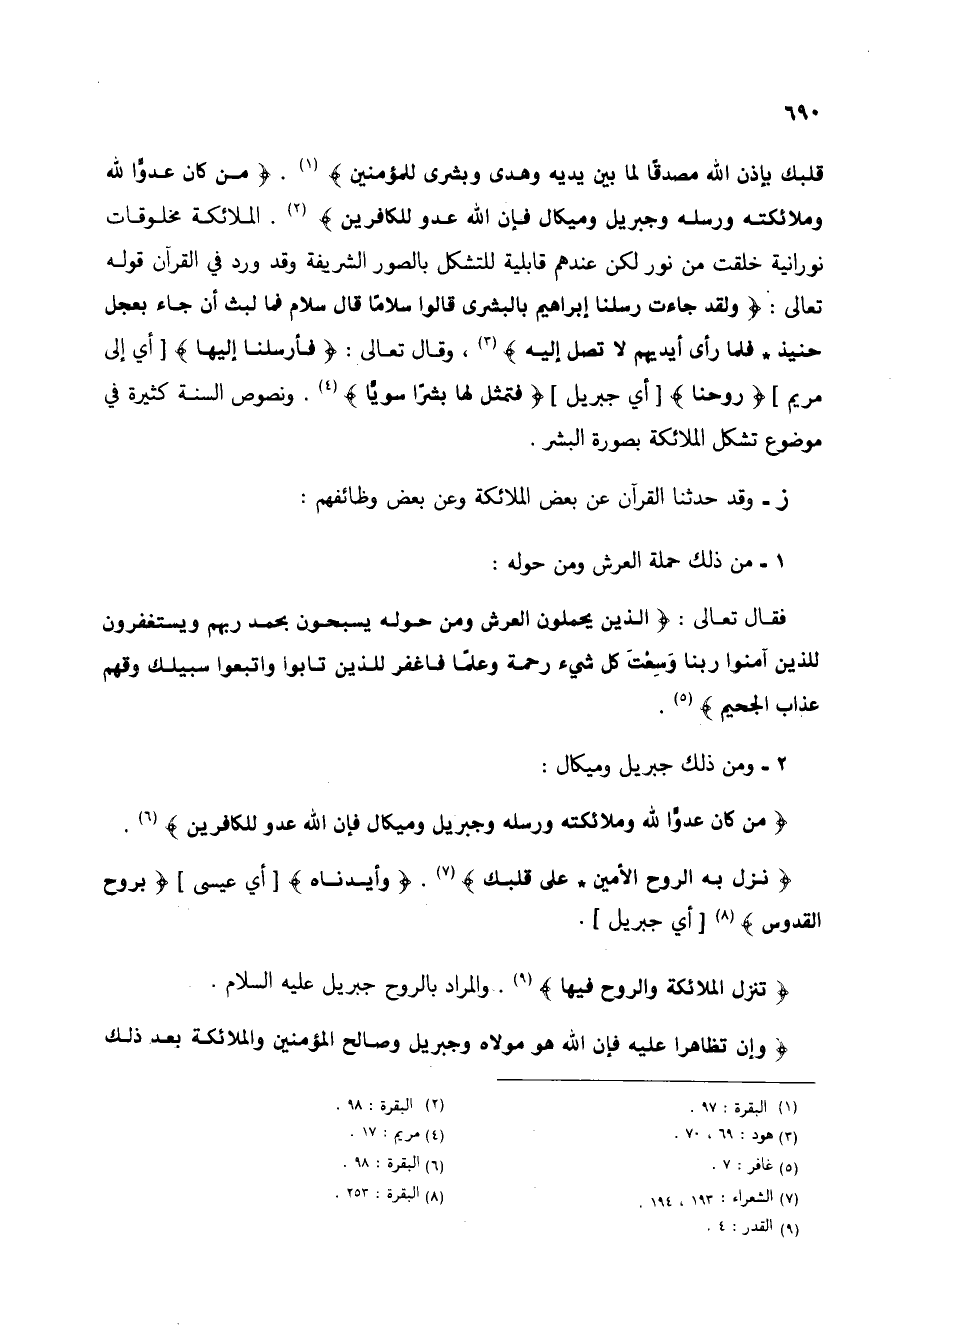 ٦٩٠
قلبك بإذن الله مصدقًا لما بين يديه وهدى وبشرى للمؤمنين ﴾ (١) . ﴿ من كان عدوًّا لله
وملائكته ورسله وجبريل وميكال فإن الله عدو للكافرين ﴾ (٢) . الملائكة مخلوقات
نورانية خلقت من نور لكن عندهم قابلية للتشكل بالصور الشريفة وقد ورد في القرآن قوله
تعالى : ﴿ ولقد جاءت رسلنا إبراهيم بالبشرى قالوا سلامًا قال سلام فما لبث أن جاء بعجل
حنيذ * فلما رأى أيديهم لا تصل إليه ﴾ (٣) ، وقال تعالى : ﴿ فأرسلنا إليها ﴾ [ أي إلى
مريم ] ﴿ روحنا ﴾ [ أي جبريل ] ﴿ فتمثل لها بشرًا سويًّا ﴾ (٤) . ونصوص السنة كثيرة في
موضوع تشكل الملائكة بصورة البشر .
ز ـ وقد حدثنا القرآن عن بعض الملائكة وعن بعض وظائفهم :
١ ـ من ذلك حملة العرش ومن حوله :
فقال تعالى : ﴿ الذين يحملون العرش ومن حوله يسبحون بحمد ربهم ويستغفرون
للذين آمنوا ربنا وَسِعْتَ كل شيء رحمة وعلمًا فاغفر للذين تابوا واتبعوا سبيلك وقهم
عذاب الجحيم ﴾ (٥) .
٢ ـ ومن ذلك جبريل وميكال :
﴿ من كان عدوًّا لله وملائكته ورسله وجبريل وميكال فإن الله عدو للكافرين ﴾ (٦) .
﴿ نزل به الروح الأمين * على قلبك ﴾ (٧) . ﴿ وأيدناه ﴾ [ أي عيسى ] ﴿ بروح
القدوس ﴾ (٨) [ أي جبريل ] .
﴿ تنزل الملائكة والروح فيها ﴾ (٩) . والمراد بالروح جبريل عليه السلام .
﴿ وإن تظاهرا عليه فإن الله هو مولاه وجبريل وصالح المؤمنين والملائكة بعد ذلك
(١) البقرة : ٩٧ .
(٢) البقرة : ٩٨ .
(٣) هود : ٦٩ ، ٧٠ .
(٤) مريم : ١٧ .
(٥) غافر : ٧ .
(٦) البقرة : ٩٨ .
(٧) الشعراء : ١٩٣ ، ١٩٤ .
(٨) البقرة : ٢٥٣ .
(٩) القدر : ٤ .